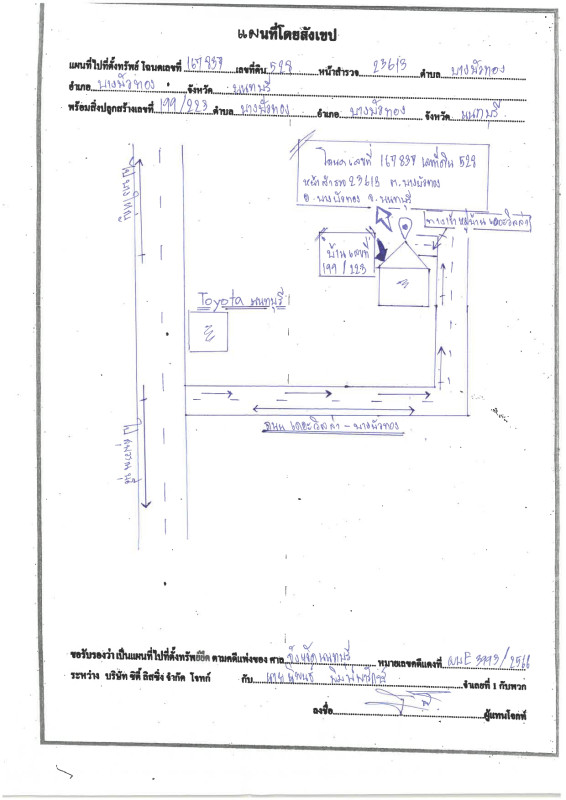 แผนที่โดยสังเขป
แผนที่ไปที่ตั้งทรัพย์ โฉนดเลขที่ 167837 เลขที่ดิน 528 หน้าสำรวจ 23613 ตำบล บางบัวทอง
อำเภอ บางบัวทอง จังหวัด นนทบุรี
พร้อมสิ่งปลูกสร้างเลขที่ 199/223 ตำบล บางบัวทอง อำเภอ บางบัวทอง จังหวัด นนทบุรี
โฉนดเลขที่ 167837 เลขที่ดิน 528
หน้าสำรวจ 23613 ต.บางบัวทอง
อ.บางบัวทอง จ.นนทบุรี
ทางเข้าหมู่บ้าน เดอะวิลล่า
บ้านเลขที่
199/223
ไปบางใหญ่
Toyota นนทบุรี
ถนน เดอะวิลล่า - บางบัวทอง
ขอรับรองว่า เป็นแผนที่ไปที่ตั้งทรัพย์ยึด ตามคดีแพ่งของ ศาล จังหวัดนนทบุรี หมายเลขคดีแดงที่ ผบE 3993/2566
ระหว่าง บริษัท ซิตี้ ลิสซิ่ง จำกัด โจทก์ กับ นาย จำเลยที่ 1 กับพวก
ลงชื่อ ผู้แทนโจทก์